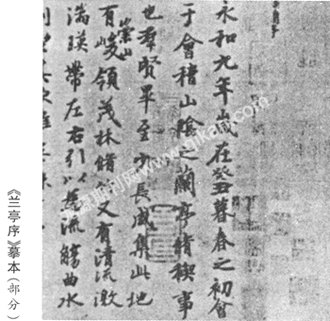 永和九年歲在癸丑暮春之初會
于會稽山陰之蘭亭脩禊事
也羣賢畢至少長咸集此地
有崇山峻領茂林脩竹又有清流激
湍暎帶左右引以為流觴曲水
《兰亭序》摹本(部分)